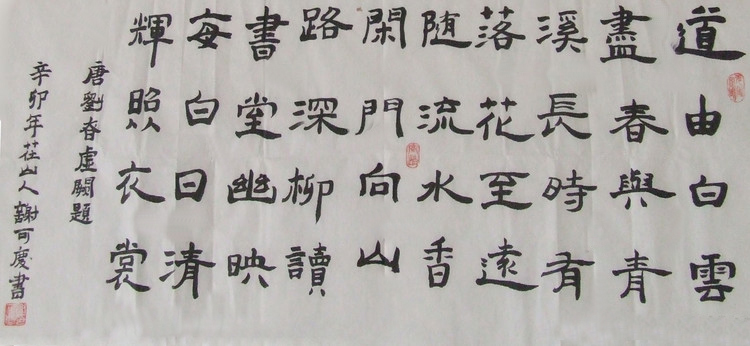 道由白雲
盡春與青
溪長時有
落花至遠
随流水香
閑門向山
路深柳讀
書堂幽映
每白日清
輝照衣裳
唐劉春虛闕題
辛卯年茌山人謝可慶書